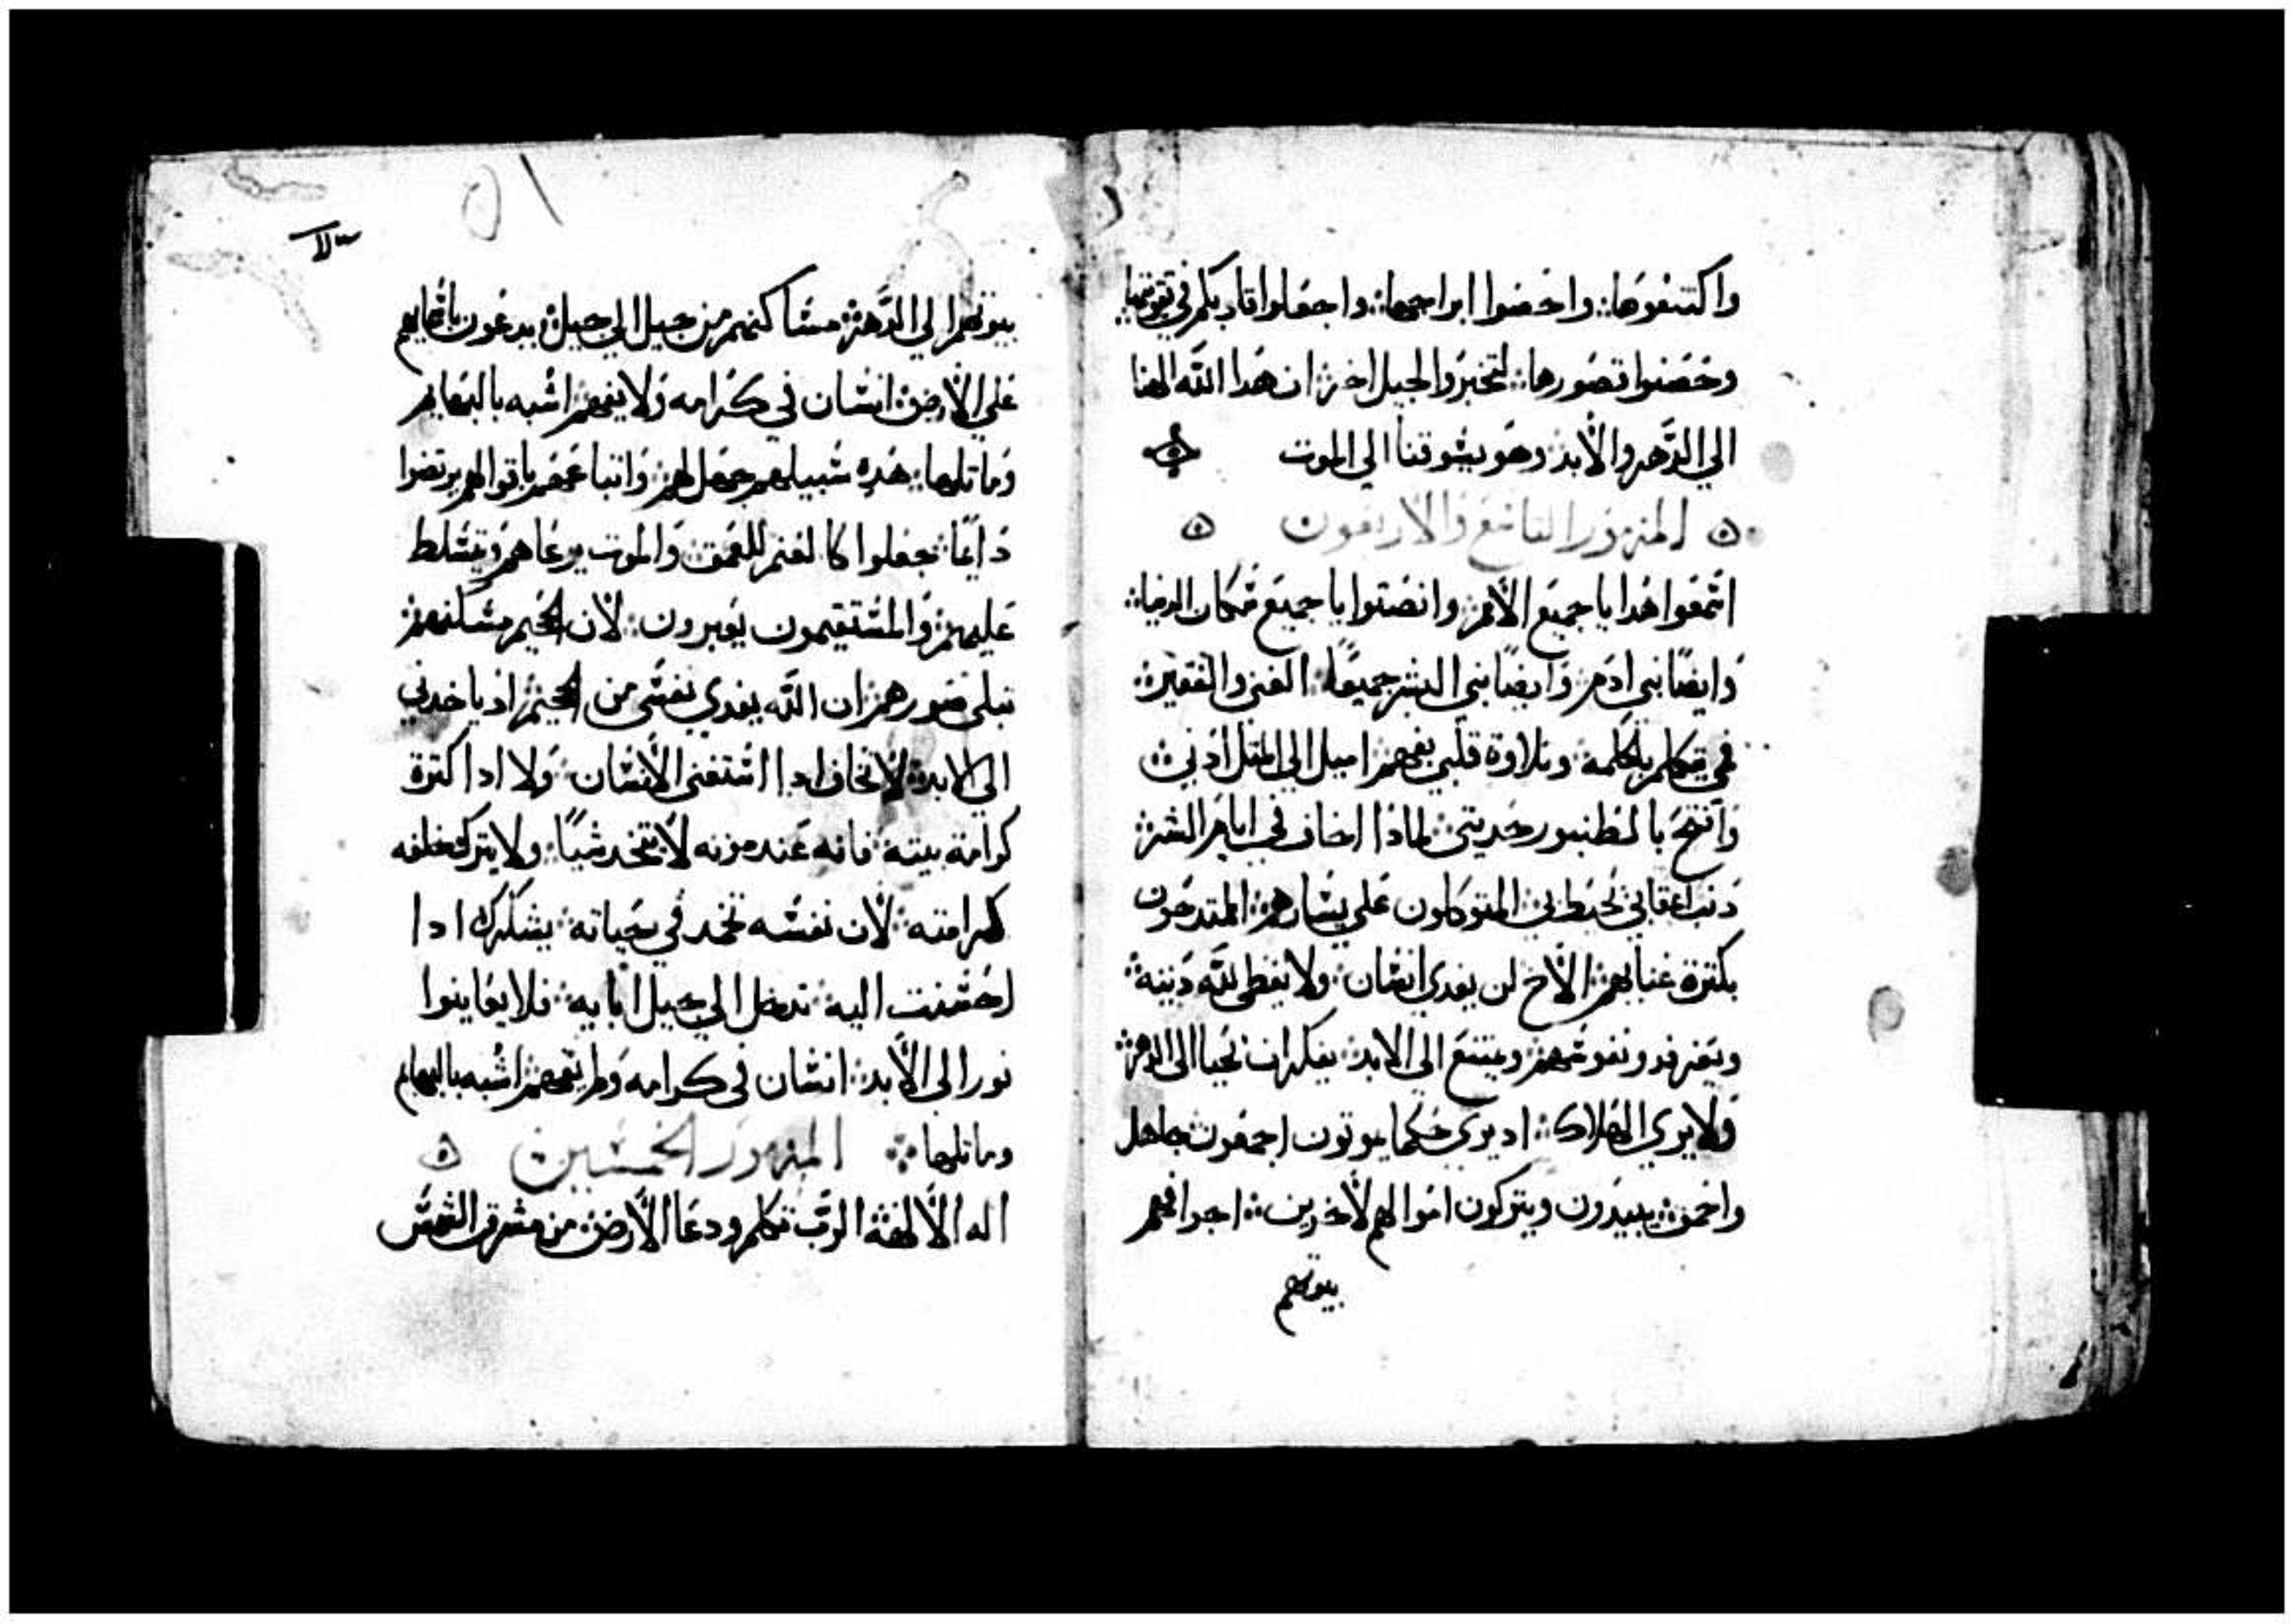 واكتنفوها: واحضوا ابراجها: واجعلوا قلوبكم في قوتها
وحصنوا قصورها: لتخبروا الجيل اخر: ان هدا الله الهنا
الي الدهر والأبد: وهو يسوقنا الي الموت
المزمور التاسع والاربعون
اسمعوا هدا يا جميع الأمم: وانصتوا يا جميع سكان الدنيا:
وايضًا بني ادم: وايضًا بني البشر جميعًا: الغني والفقير:
فمي يتكلم بالحكمه: وتلاوة قلبي بفهم: اميل الي المتل ادني:
وافتح بالطنبور حديتي: لمادا اخاف في ايام الشر:
دنب اعقابي تحيط بي: المتوكلون علي يسارهم: المتدحون
بكترة غناهم: الأخ لن يفدي انسان: ولا يعطي لله دينه:
الي الابد: يفكر ان يحيا الي الدهر:
ولا يري الهلاك: اد يري حكما يموتون اجمعون: جاهل
واحمق: يبيدون ويتركون اموالهم لأخرين: اجدافهم
بيوتهم
٥١
بيوتهم الي الدهر: مساكنهم من جيل الي جيل: يدعون باسمايهم
علي الأرض: انسان في كرامه ولا يفهم: اشبه بالبهايم
وماتلها: هده سبيلهم جهل لهم: واتباعهم باقوالهم يرتضوا
دايمًا: جعلوا كالغنم للعمق: والموت يرعاهم: ويتسلط
عليهم: والمستقيمون يعبرون: لأن الجحيم مسكنهم:
تبلي صورهم: ان الله يفدي نفسي من الجحيم: اد ياخدني
الي الابد: لا تخاف ادا استغني الأنسان: ولا ادا كترة
كرامة بيته: فانه عند موته لا يتخد شيًا: ولا يترك خلفه
كرامته: لأن نفسه تحمد في حياته: يشكرك ادا
احسنت اليه: تدخل الي جيل ابايه: فلا يعاينوا
نورا الي الأبد: انسان في كرامه ولم يفهم: اشبه بالبهايم
وماتلها: المزمور الخمسين
اله الألهة: الرب تكلم ودعا الأرض: من مشرق الشمس